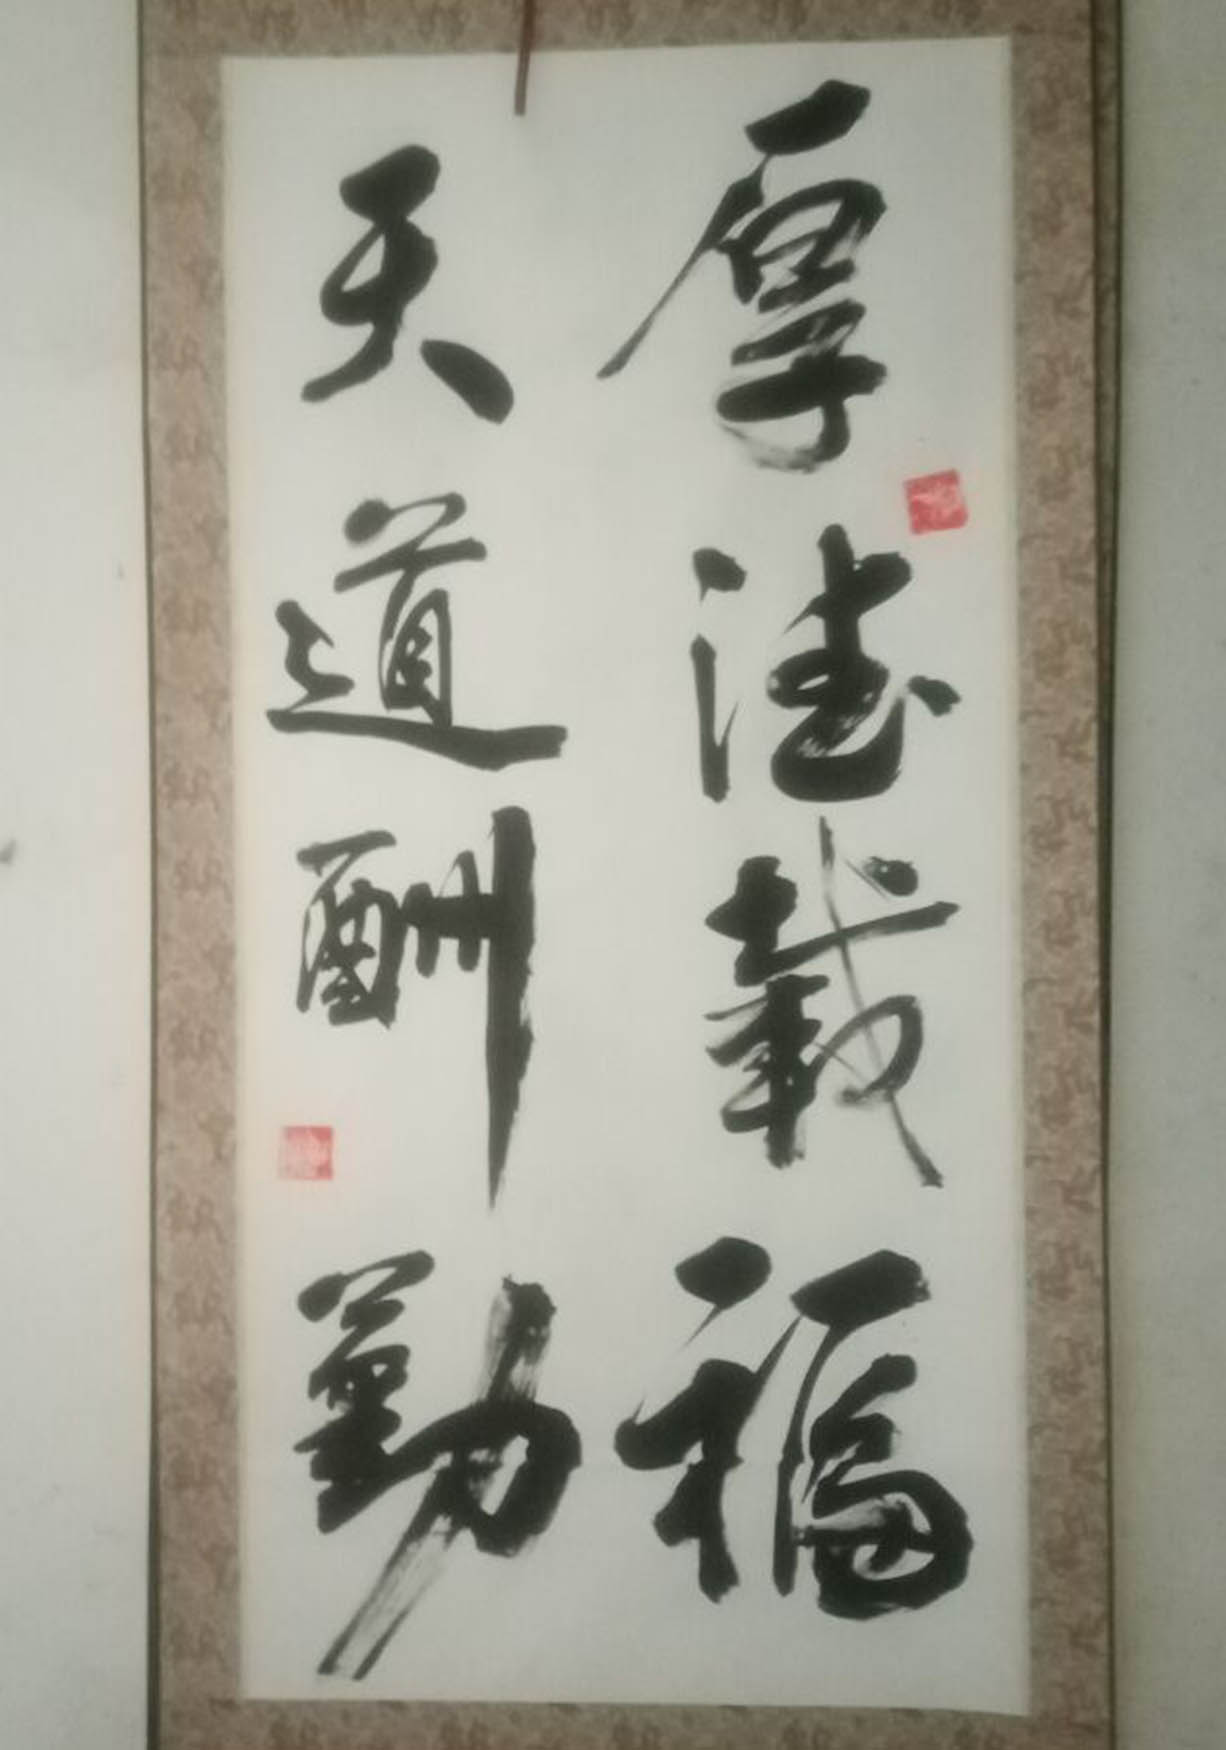 厚德载福
天道酬勤